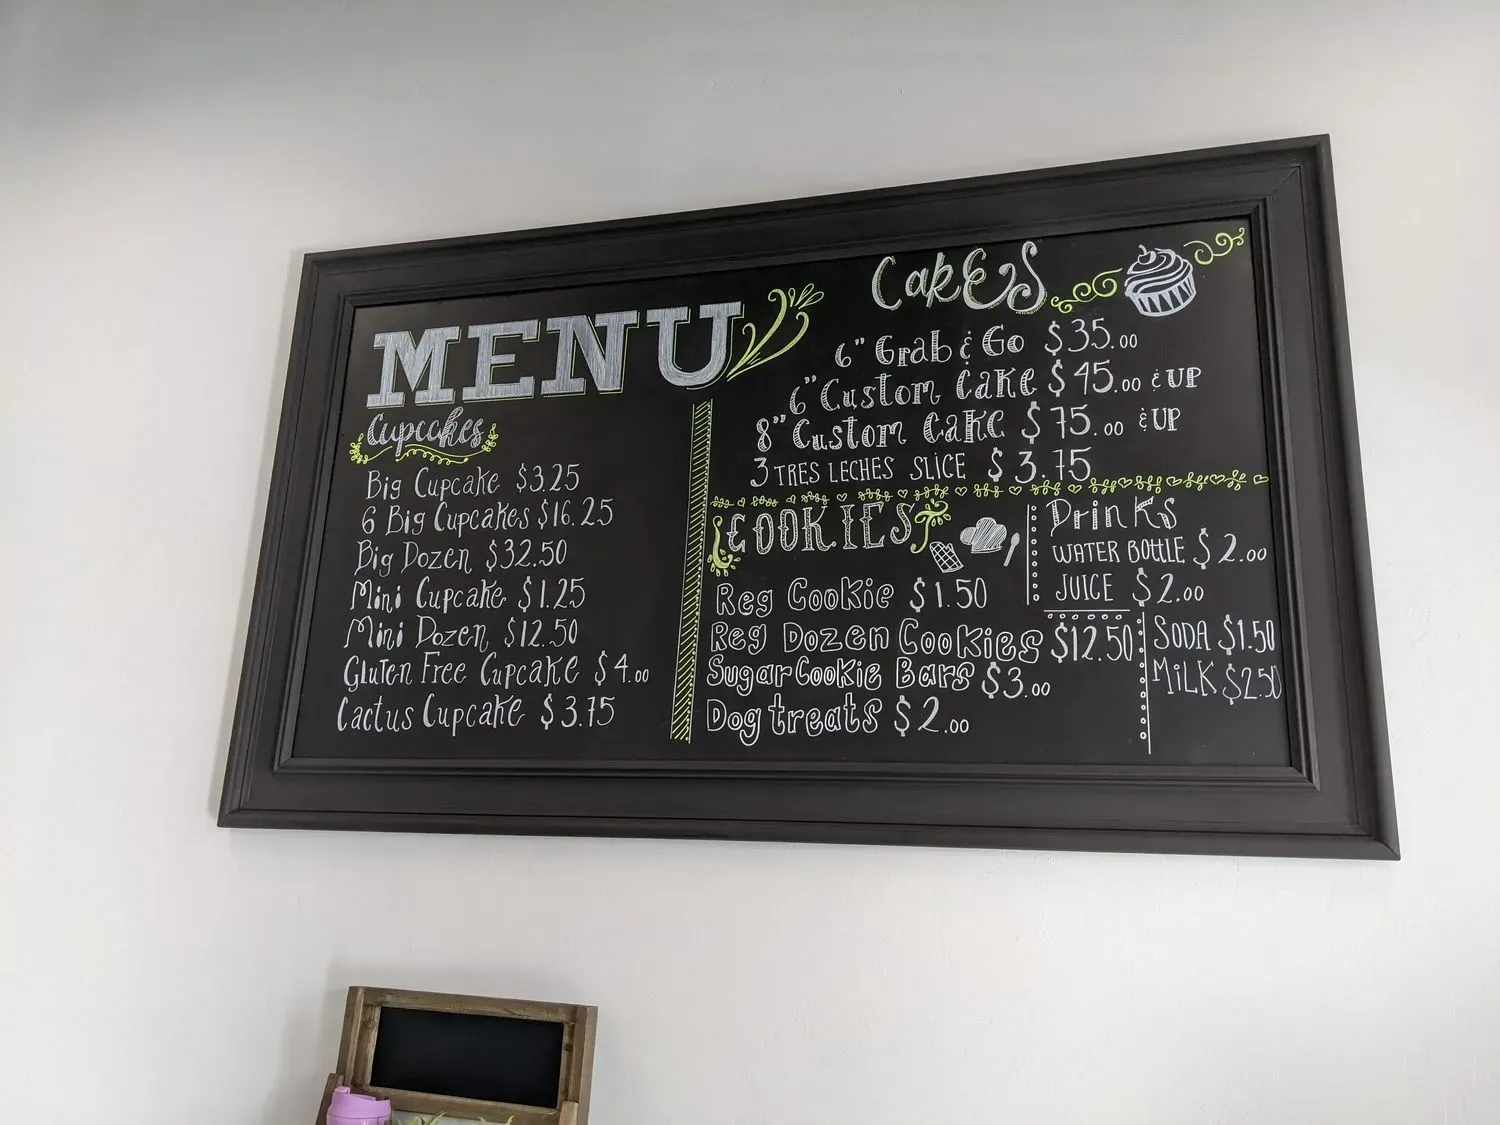 MENU
Cupcakes
Big Cupcake $3.25
6 Big Cupcakes $16.25
Big Dozen $32.50
Mini Cupcake $1.25
Mini Dozen $12.50
Gluten Free Cupcake $4.00
Cactus Cupcake $3.75
CakES
6" Grab & Go $35.00
6" Custom Cake $45.00 & UP
8" Custom Cake $75.00 & UP
3 TRES LECHES SLICE $3.75
COOKIES
Reg Cookie $1.50
Reg Dozen Cookies $12.50
Sugar Cookie Bars $3.00
Dog treats $2.00
Drinks
WATER BOTTLE $2.00
JUICE $2.00
SODA $1.50
MiLK $2.50